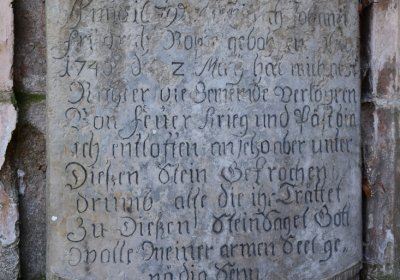 ich Johannes
friedrich Rose gebohren Anno
1740 d 2 Mey hat mich zum
Richter die Gemeinde Verlohren
Von feuer Krieg und Pest bin
ich entloffen anjetzo aber unter
Dießen Stein Gekrochen
drumb alle die ihr Trattet
Zu Dießen Stein Saget Gott
Wolle Meiner armen Seel ge,
nädig Seyn